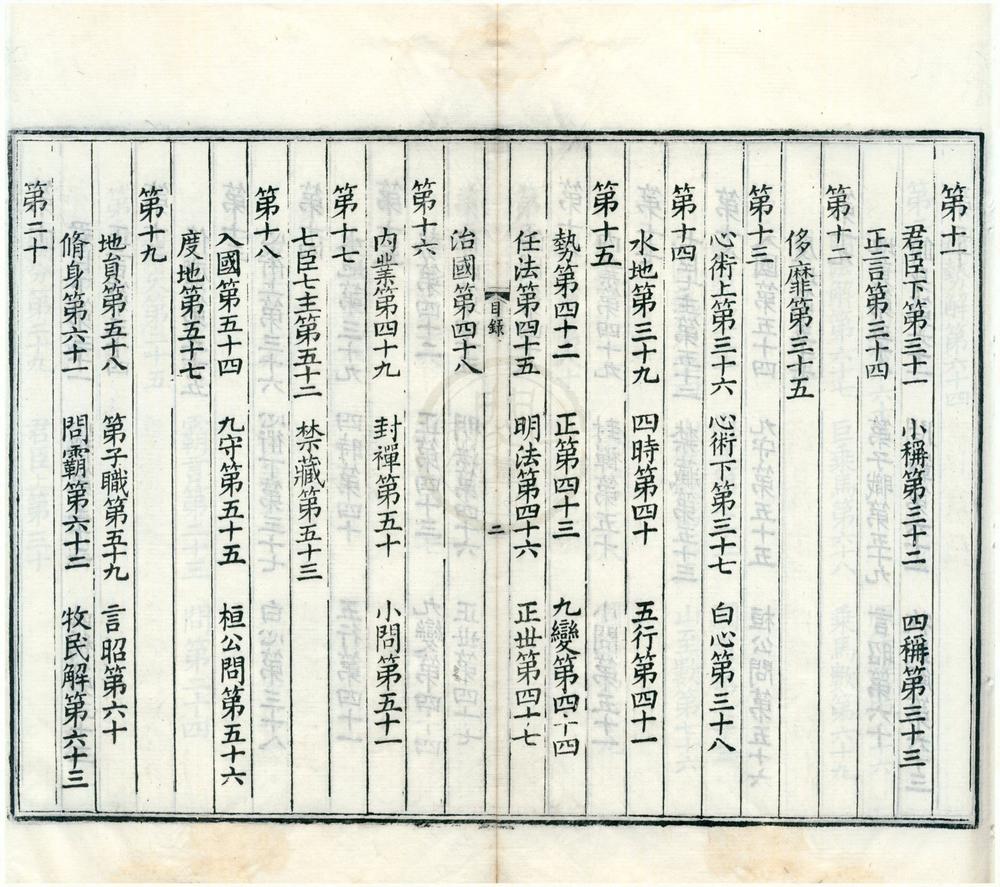 第十一
君臣下第三十一　小稱第三十二　四稱第三十三
正言第三十四
第十二
侈靡第三十五
第十三
心術上第三十六　心術下第三十七　白心第三十八
第十四
水地第三十九　四時第四十　五行第四十一
第十五
勢第四十二　正第四十三　九變第四十四
任法第四十五　明法第四十六　正世第四十七
目錄　二
治國第四十八
第十六
內業第四十九　封禪第五十　小問第五十一
第十七
七臣七主第五十二　禁藏第五十三
第十八
入國第五十四　九守第五十五　桓公問第五十六
度地第五十七
第十九
地員第五十八　第子職第五十九　言昭第六十
脩身第六十一　問霸第六十二　牧民解第六十三
第二十